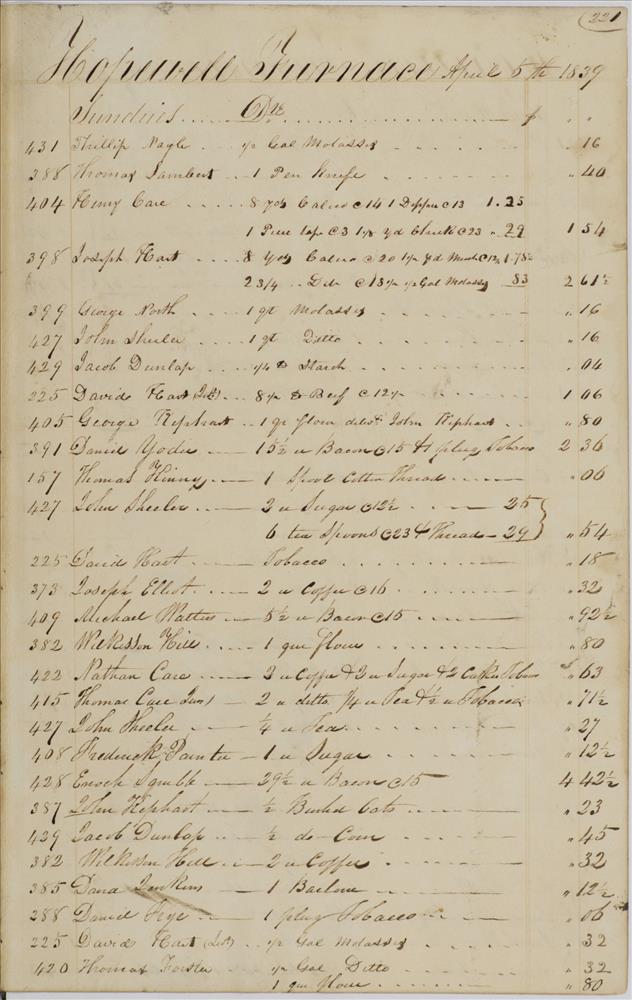 221
Hopewell Furnace April 5th 1839
Sundries Drs $ "
431 Phillip Nagle ½ Gal Molasses " 16
388 Thomas Lambert 1 Pen Knife " 40
404 Henry Care 8 yds Calico @ 14 1 @ 13 1.25
1 Piece tape @ 3 1⅛ yd Check @ 23 " 29 1 54
398 Joseph Hart 8 yds Calico @ 20 1½ yd @ 12½ 1.78½
2 3/4 Do @ 13½ ½ Gal Molasses 83 2 61½
399 George North 1 qt Molasses " 16
427 John Sheeler 1 qt Ditto " 16
429 Jacob Dunlap ¼ lb Starch " 04
225 David Hart 8½ lb Beef @ 12½ 1 06
405 George Kephart 1 qr flour John Kephart " 80
391 David Yoder 15½ " Bacon @ 15 & 1 plug Tobacco 2 36
157 Thomas Kinney 1 Spool Cotton Thread " 06
427 John Sheeler 2 " Sugar @ 12½ 25
6 tea Spoons @ 23 & Thread 29 " 54
225 David Hart Tobacco " 18
373 Joseph Elliot 2 " Coffee @ 16 " 32
409 Michael Watters 5½ " Bacon @ 15 " 92½
382 Wilkisson Hill 1 qur flour " 80
422 Nathan Care 2 " Coffee & 2 " Sugar & 2 Tobacco " 63
415 Thomas Care Junr 2 " ditto ¼ " Tea & ½ " Tobacco " 71½
427 John Sheeler ¼ " Tea " 27
408 Frederick Painter 1 " Sugar " 12½
428 Enoch Squibb 29½ " Bacon @ 15 4 42½
387 John Kephart ½ Bushel Oats " 23
429 Jacob Dunlap ½ do Corn " 45
382 Wilkisson Hill 2 " Coffee " 32
385 Jenkins 1 " 12½
288 Daniel 1 plug Tobacco " 06
225 David Hart ½ Gal Molasses " 32
420 Thomas Forster ½ Gal Ditto " 32
1 qur flour " 80